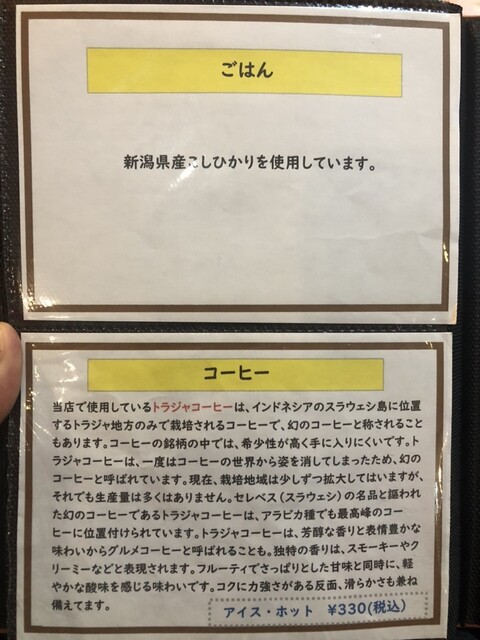 ごはん
新潟県産こしひかりを使用しています。
コーヒー
当店で使用しているトラジャコーヒーは、インドネシアのスラウェシ島に位置
するトラジャ地方のみで栽培されるコーヒーで、幻のコーヒーと称されること
もあります。コーヒーの銘柄の中では、希少性が高く手に入りにくいです。ト
ラジャコーヒーは、一度はコーヒーの世界から姿を消してしまったため、幻の
コーヒーと呼ばれています。現在、栽培地域は少しずつ拡大してはいますが、
それでも生産量は多くはありません。セレベス（スラウェシ）の名品と謳われ
た幻のコーヒーであるトラジャコーヒーは、アラビカ種でも最高峰のコー
ヒーに位置付けられています。トラジャコーヒーは、芳醇な香りと表情豊かな
味わいからグルメコーヒーと呼ばれることも。独特の香りは、スモーキーやク
リーミーなどと表現されます。フルーティでさっぱりとした甘味と同時に、軽
やかな酸味を感じる味わいです。コクに力強さがある反面、滑らかさも兼ね
備えてます。
アイス・ホット ¥330(税込)